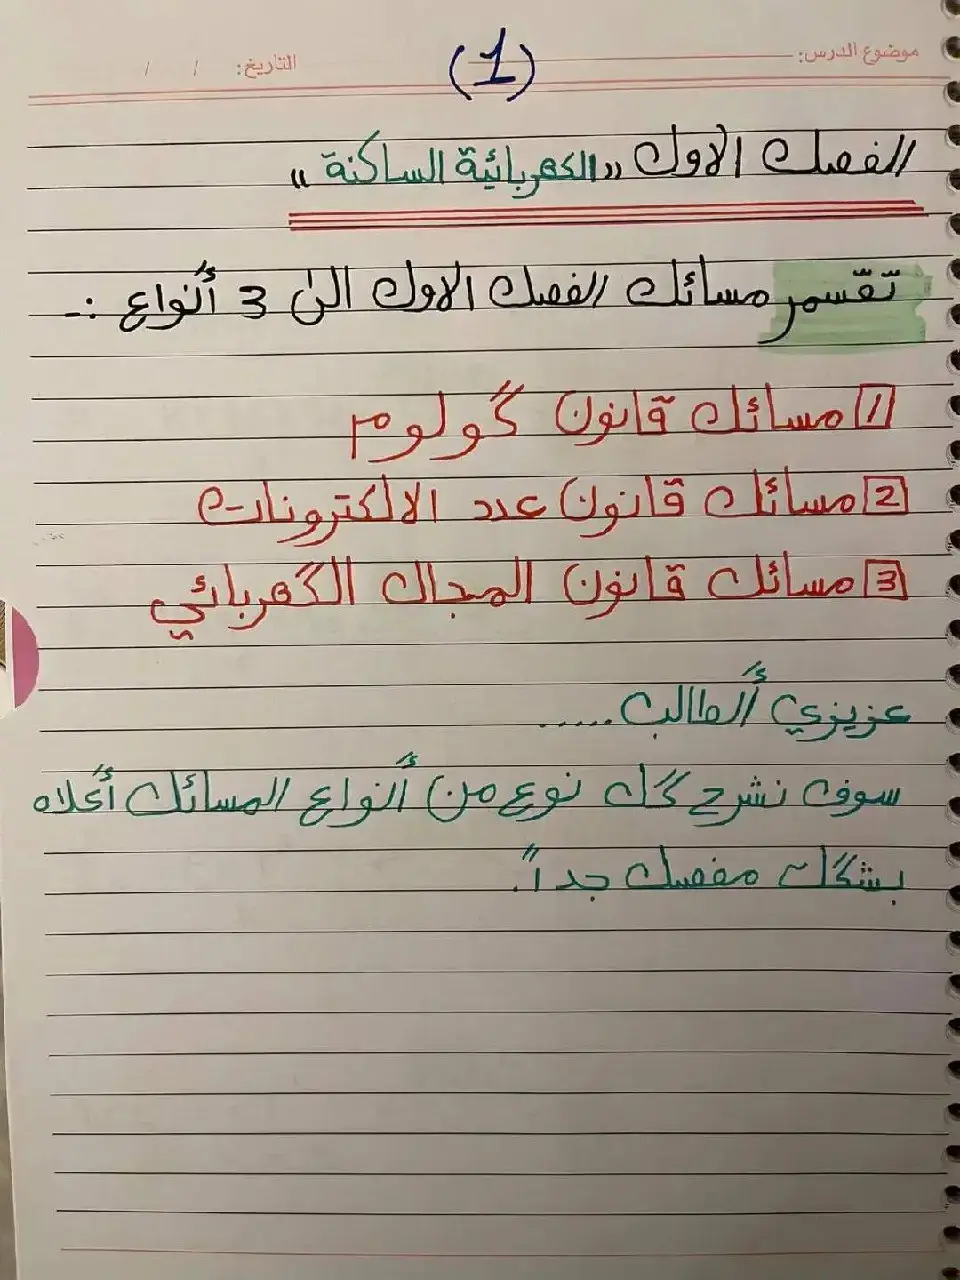 موضوع الدرس: التاريخ: / /
(1)
الفصل الاول «الكهربائية الساكنة»
تقسم مسائل الفصل الاول الى 3 أنواع :-
1 مسائل قانون كولوم
2 مسائل قانون عدد الالكترونات
3 مسائل قانون المجال الكهربائي
عزيزي ألطالب.....
سوف نشرح كل نوع من أنواع المسائل أعلاه
بشكل مفصل جداً.